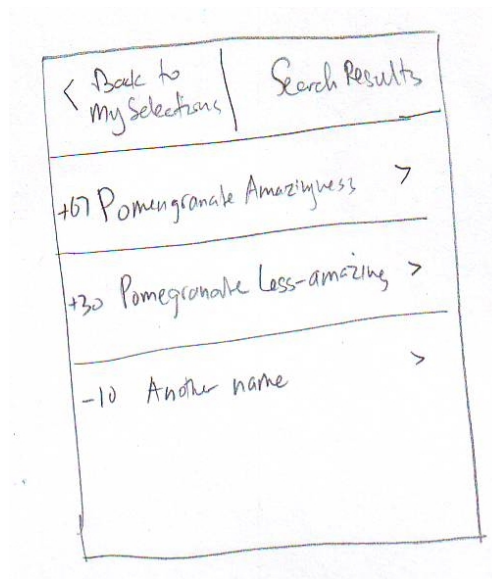 < Back to
My Selections
Search Results
+67 Pomengranate Amazingness >
+30 Pomegranate Less-amazing >
-10 Another name >